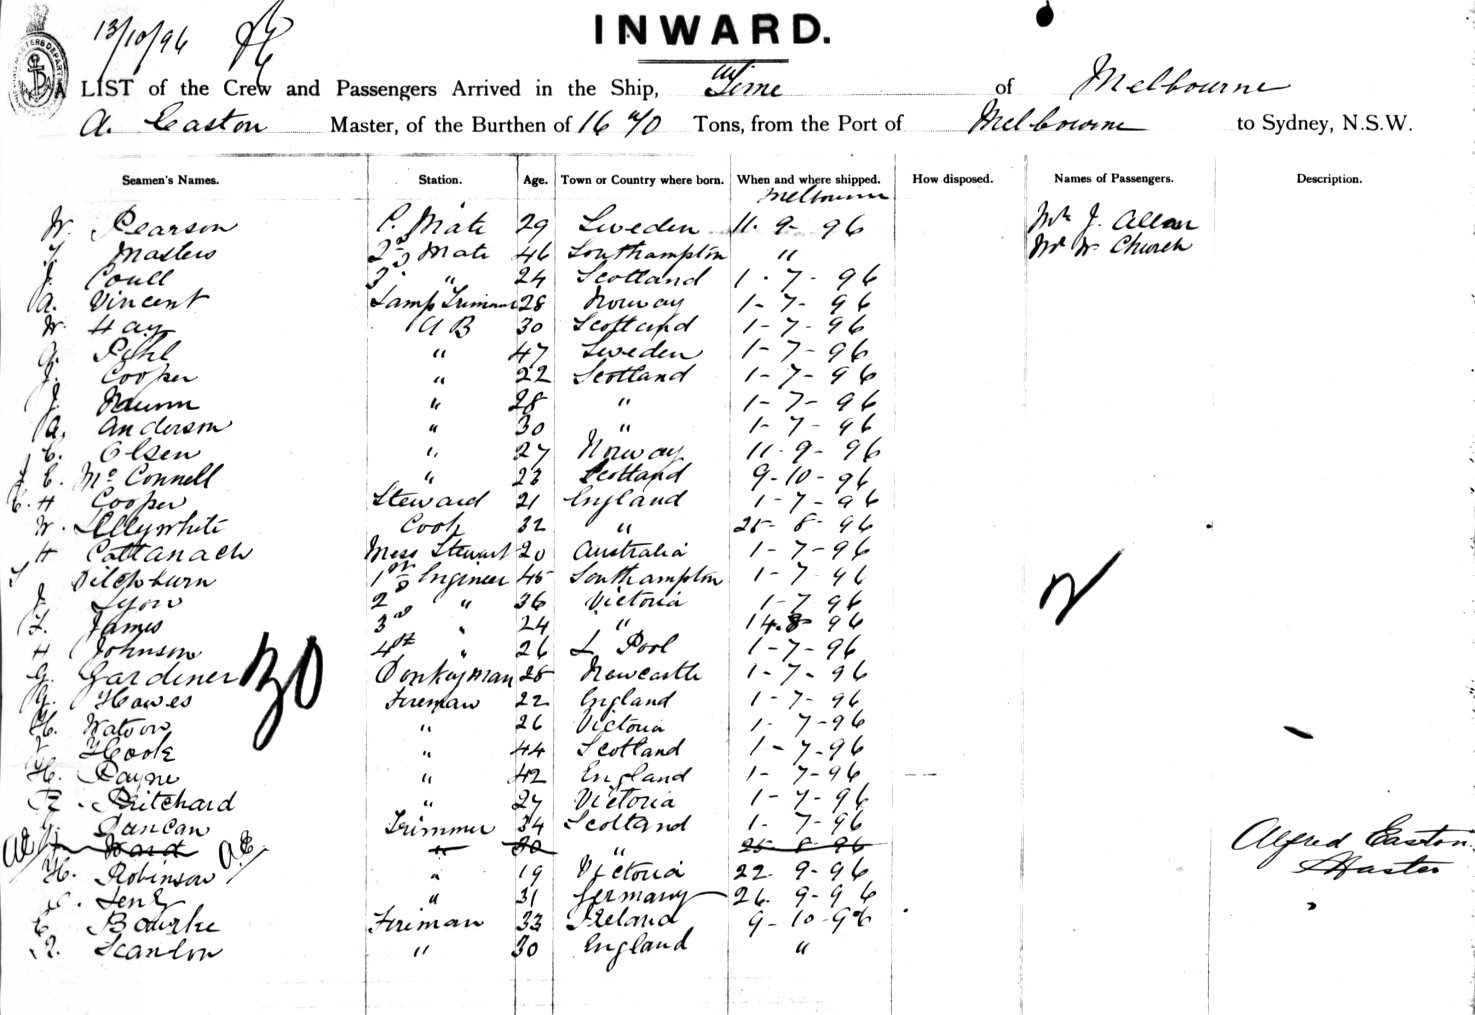 13/10/96
INWARD.
A LIST of the Crew and Passengers Arrived in the Ship, Time of Melbourne
A. Easton Master, of the Burthen of 16 70 Tons, from the Port of Melbourne to Sydney, N.S.W.
Seamen's Names. Station. Age. Town or Country where born. When and where shipped. How disposed. Names of Passengers. Description.
Melbourne
W. Pearson C. Mate 29 Sweden 11. 9. 96 Mr J. Allan
Masters 2nd Mate 46 Southampton " Mr W. Church
J. Coull 3 " 24 Scotland 1. 7. 96
A. Vincent Lamp Trimmer 28 Norway 1- 7- 96
W. Hay A B 30 Scotland 1- 7- 96
Pihl " 47 Sweden 1- 7- 96
J. Cooper " 22 Scotland 1- 7- 96
J. " 28 " 1- 7- 96
A. Anderson " 30 " 1- 7- 96
C. Olsen " 27 Norway 11. 9- 96
J E. McConnell " 23 Scotland 9- 10- 96
C. H Cooper Steward 21 England 1- 7- 96
W. Lillywhite Cook 32 " 25- 8- 96
H Cattanach Mess Stewart 20 Australia 1- 7- 96
Ditchburn 1st Engineer 45 Southampton 1- 7 96
J. Lyon 2nd " 36 Victoria 1- 7 96
F. James 3rd " 24 " 14. 8- 96
H Johnson 4th " 26 L Pool 1- 7- 96
G. Gardiner Donkeyman 25 Newcastle 1- 7- 96
Hawes Fireman 22 England 1- 7- 96
H. Watson " 26 Victoria 1- 7- 96
Hook " 44 Scotland 1- 7- 96
H. Payne " 42 England 1- 7- 96
R. Pritchard " 27 Victoria 1- 7- 96
Duncan Trimmer 34 Scotland 1- 7- 96
AE Ward AE " 30 " 25 8 96
H. Robinson " 19 Victoria 22. 9- 96
" 31 Germany 26. 9- 96
E Bourke Fireman 33 Ireland 9- 10- 96
Scanlon " 30 England "
30
2
Alfred Easton
Master